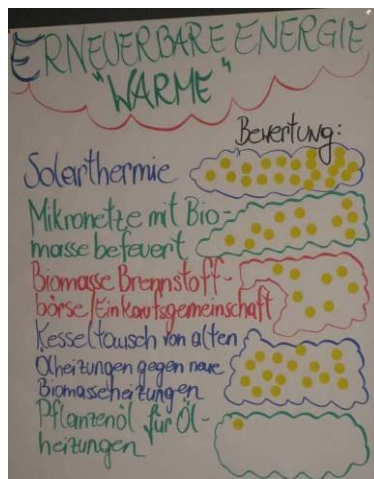 ERNEUERBARE ENERGIE
"WÄRME"
Bewertung:
Solarthermie
Mikronetze mit Bio-
masse befeuert
Biomasse Brennstoff-
börse/Einkaufsgemeinschaft
Kesseltausch von alten
Ölheizungen gegen neue
Biomasseheizungen
Pflanzenöl für Öl-
heizungen